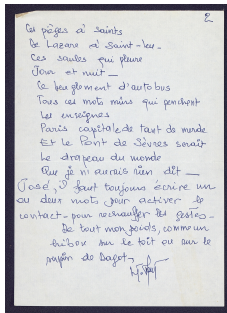 2
Ces pièges à saints
De Lazare à Saint-Leu
Ces saules qui pleure
Jour et nuit —
Ce beuglement d'autobus
Tous ces mots mûrs qui penchent
Les enseignes
Paris capitale de tant de merde
Et le Pont de Sèvres serait
Le drapeau du monde
Que je n'aurais rien dit —
José, il faut toujours écrire un
ou deux mots pour activer le
contact - pour réchauffer les gestes.
De tout mon poids, comme un
hibou sur le toit ou sur le
de